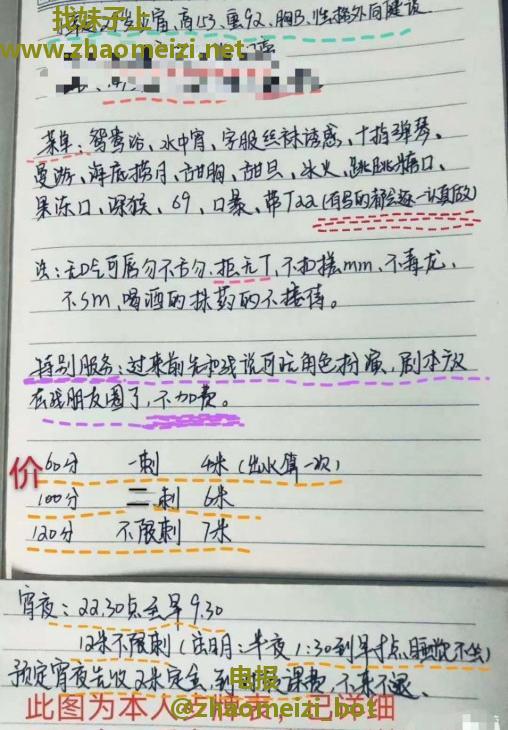 找妹子上
www.zhaomeizi.net
高153,重92,胸B,性格外向健谈
菜单:鸳鸯浴、水中宵、字服丝袜诱惑、十指弹琴、
曼游、海底捞月、甜胸、甜旦、冰火、跳跳糖口、
果冻口、深猴、69、口暴、带T22(有写的都会逐一认真做)
注:无D气可唇勿不舌勿,拒无T,不扣搓mm,不毒龙,
不sm,喝酒的抹药的不接待。
特别服务:过来前先和我说可玩角色扮演,剧本放
在我朋友圈了,不加费。
价
60分 一刺 4米(出水算一次)
100分 二刺 6米
120分 不限刺 7米
宵夜:22.30点至早9.30
12米不限刺(注明:半夜1:30到早 点 不 )
预定宵夜先收2米定金,到 课费,不来不退。
电报
此图为本人 已详细
@zhaomeizi_bot